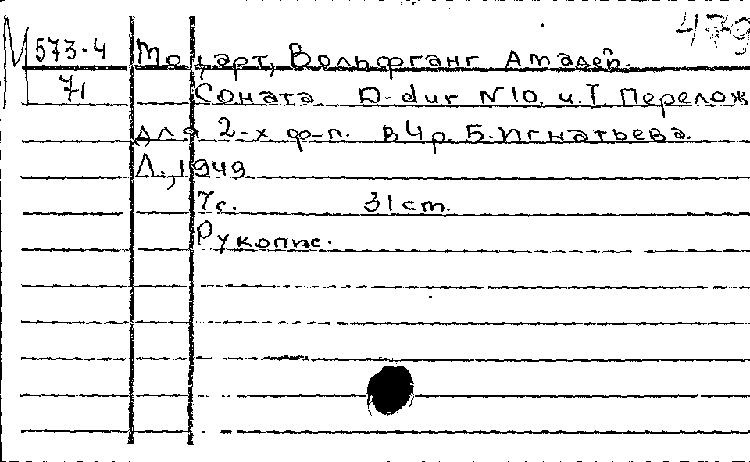 479
М 573-4 Моцарт, Вольфганг Амадей.
71 Соната D-dur N10. ч. I Перелож
для 2-х ф-п. в 4 р. Б. Игнатьева.
Л., 1949
7с. 31 ст.
Рукопис.